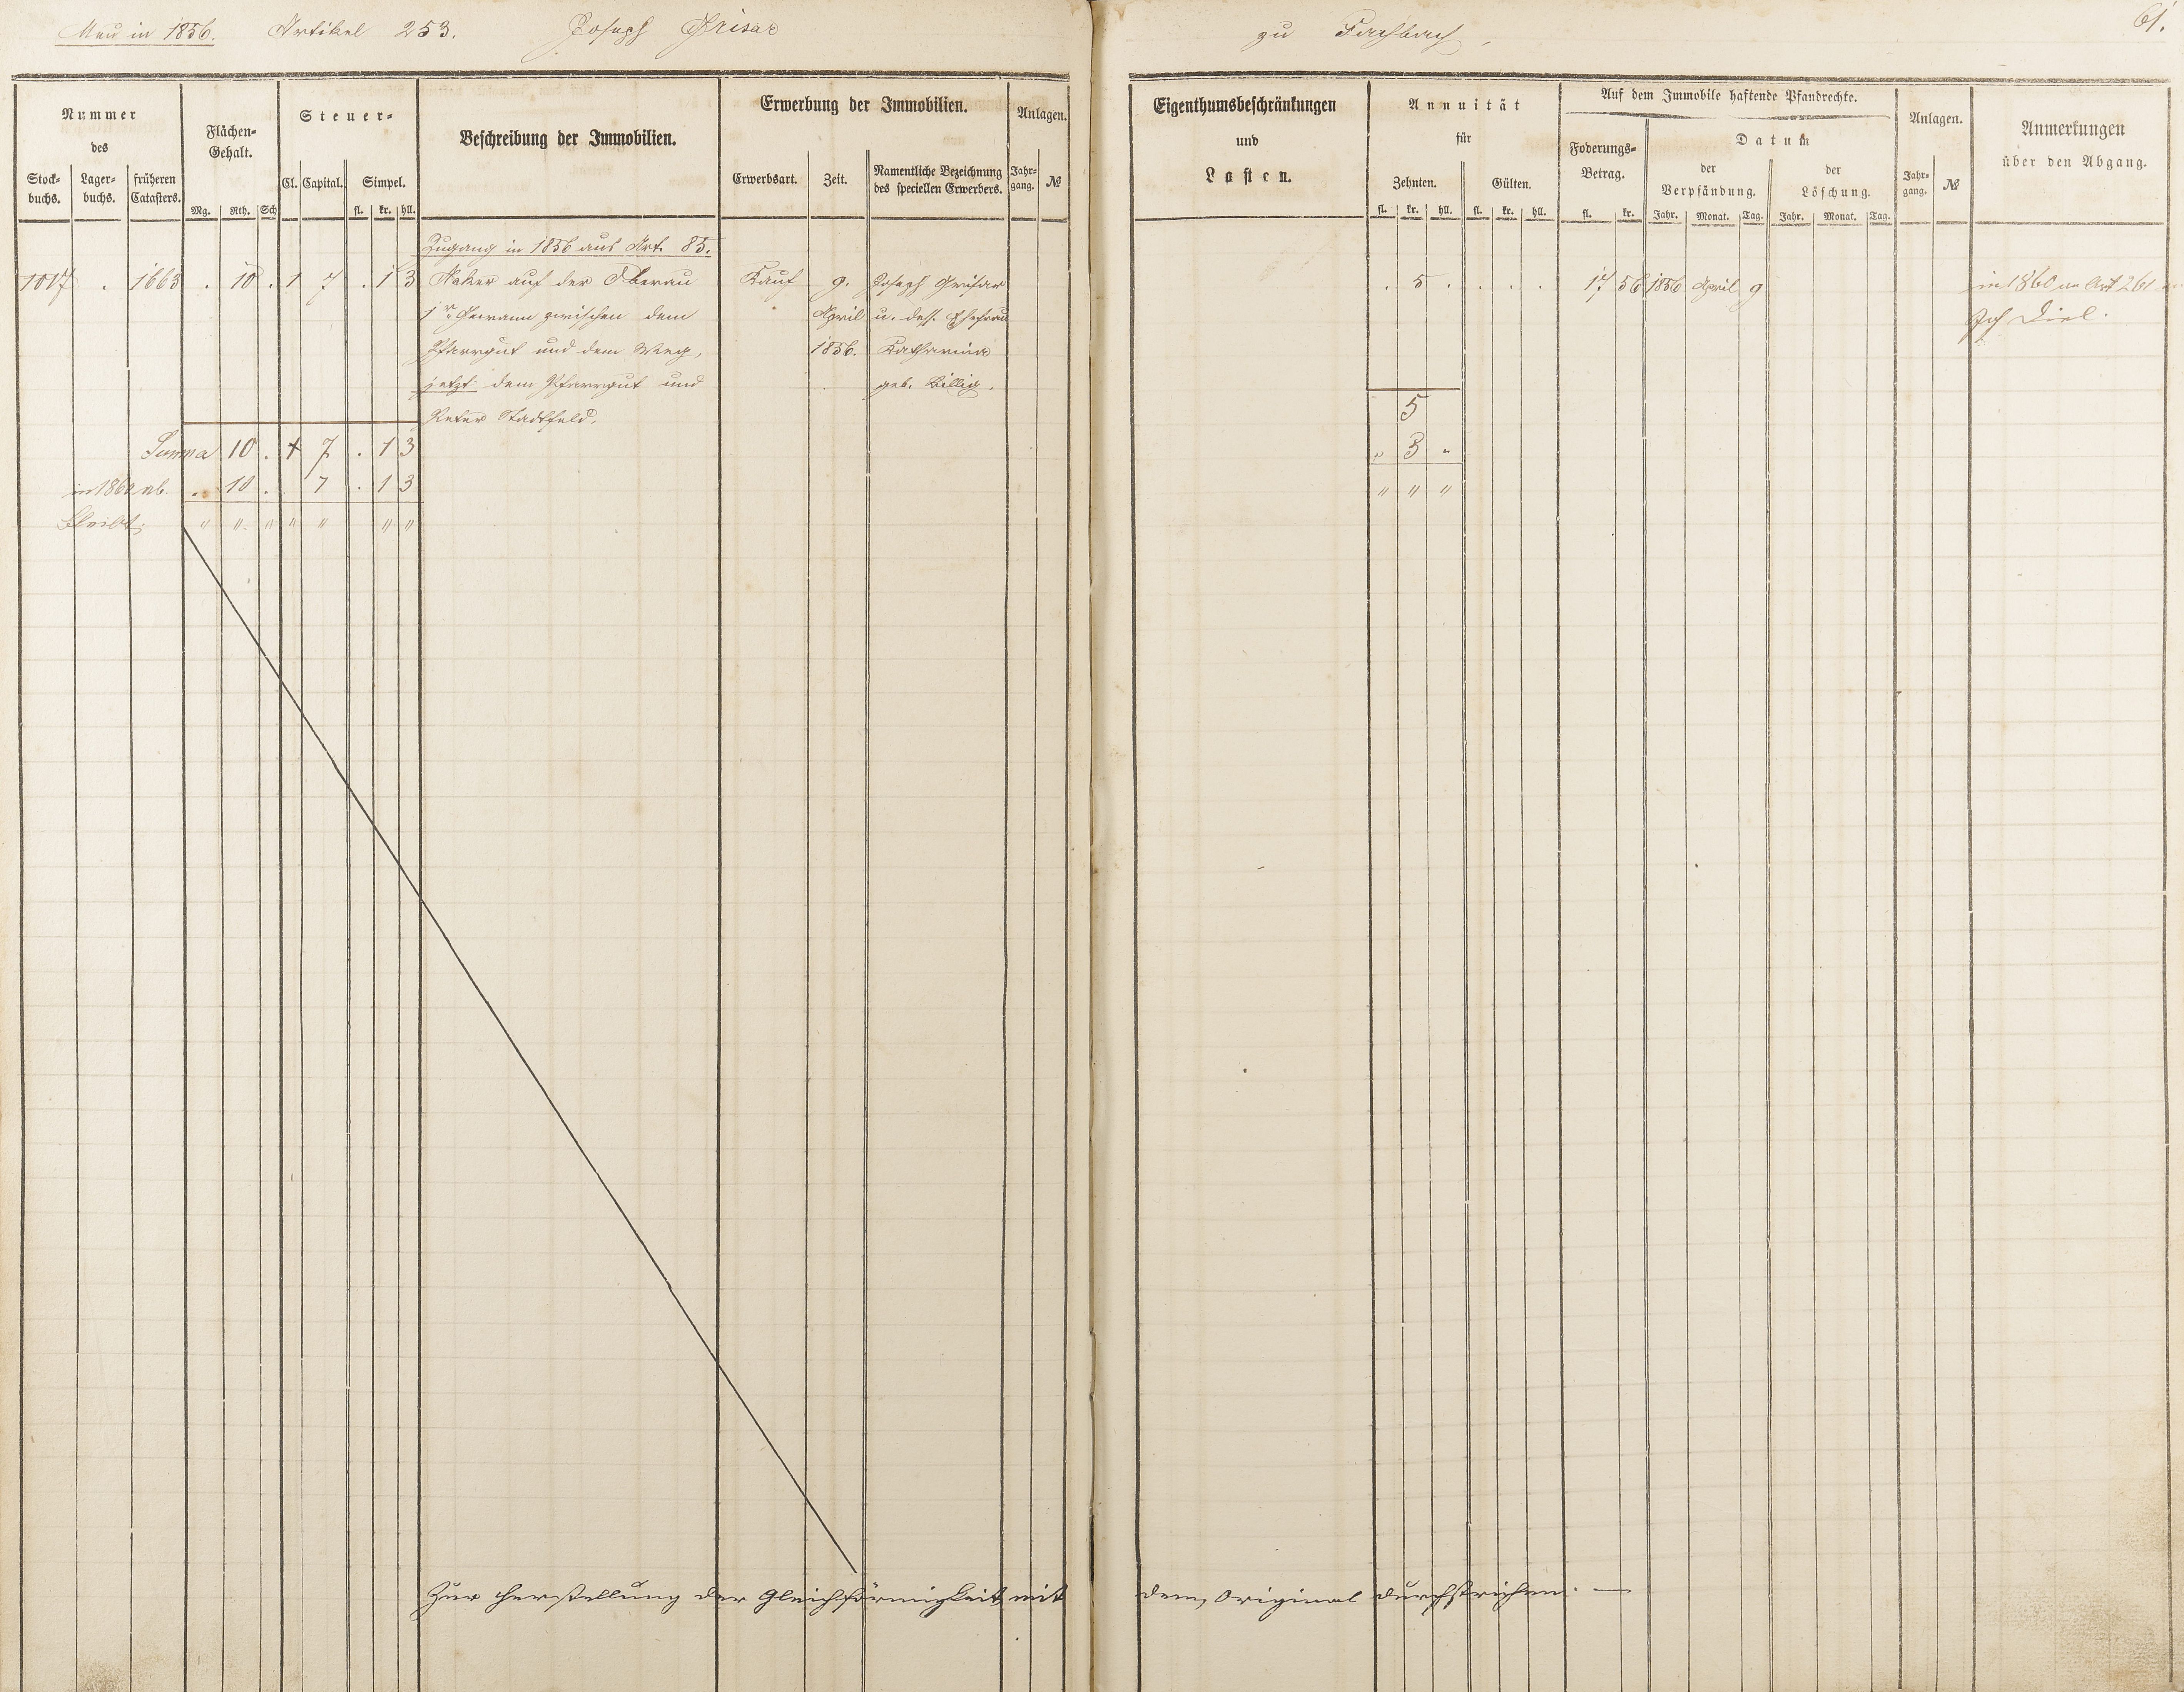 Neu in 1856. Artikel 253. Joseph Grisar zu Fachbach. 61.
Nummer des
Stockbuchs. Lagerbuchs. früheren Catasters.
Flächen-Gehalt.
Mg. Rth. Sch
Steuer-
Cl. Capital. Simpel.
fl. kr. hll.
Beschreibung der Immobilien.
Erwerbung der Immobilien.
Erwerbsart. Zeit. Namentliche Bezeichnung des speciellen Erwerbers.
Anlagen.
Jahrgang. №
Eigenthumsbeschränkungen
und
Lasten.
Annuität
für
Zehnten. Gülten.
fl. kr. hll. fl. kr. hll.
Auf dem Immobile haftende Pfandrechte.
Foderungs-Betrag.
fl. kr.
Datum
der Verpfändung. der Löschung.
Jahr. Monat. Tag. Jahr. Monat. Tag.
Anlagen.
Jahrgang. №
Anmerkungen
über den Abgang.
Zugang in 1856 aus Art. 85.
1017 . 1663 . 10 . 1 7 . 1 3 Acker auf der Oberau Kauf 9. Joseph Grisar . 5 . . . . 17 56 1856 April 9 in 1860 an Art 261
1r Gewann zwischen dem April u. dess. Ehefrau Jos Diel.
Pfarrgut und dem Weg, 1856. Katharina
jetzt dem Pfarrgut und geb. Billig.
Peter Stadtfeld. 5
Summa 10 . + 7 . 1 3 " 3 "
in 1860 ab . 10 . 7 . 1 3 " " "
Bleibt: " " " " " " "
Zur Herstellung der Gleichförmigkeit mit dem Original durchstrichen. —